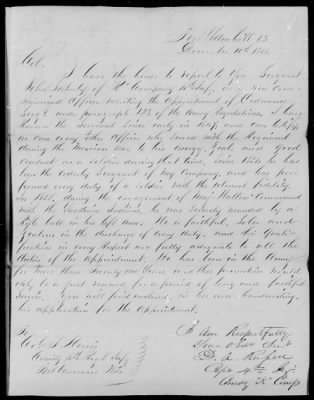 December 10th 1860
Col.
I have the honor to report to you Sergeant
John
Company 4th Infy. as a non com-
missioned Officer meriting the appointment of Ordnance
Sergt. under paragraph 133 of the Army Regulations. I have
known the Sergeant since early in 1847, and can testify
as can every other Officer who served with the Regiment
during the Mexican War to his energy, zeal and good
conduct as a soldier during that time. Since 1848 he has
been the orderly Sergeant of my Company, and has per-
formed every duty of a soldier with the utmost fidelity.
In 1855, during the engagement of Maj. Haller's Command
with the Indians, he was severely wounded by a
rifle ball in his left arm. He is faithful, sober and
zealous in the discharge of every duty, and his qualifi-
cations in every respect are fully adequate to all the
duties of the appointment. He has been in the Army
for more than twenty one years and this promotion would
only be a just reward for a period of long and faithful
service. You will find enclosed, in his own handwriting,
his application for the appointment.
I Am Respectfully
Your Obdt Servt
D. A. Russell
Capt 4th Inf
Comdg "K" Comp
To